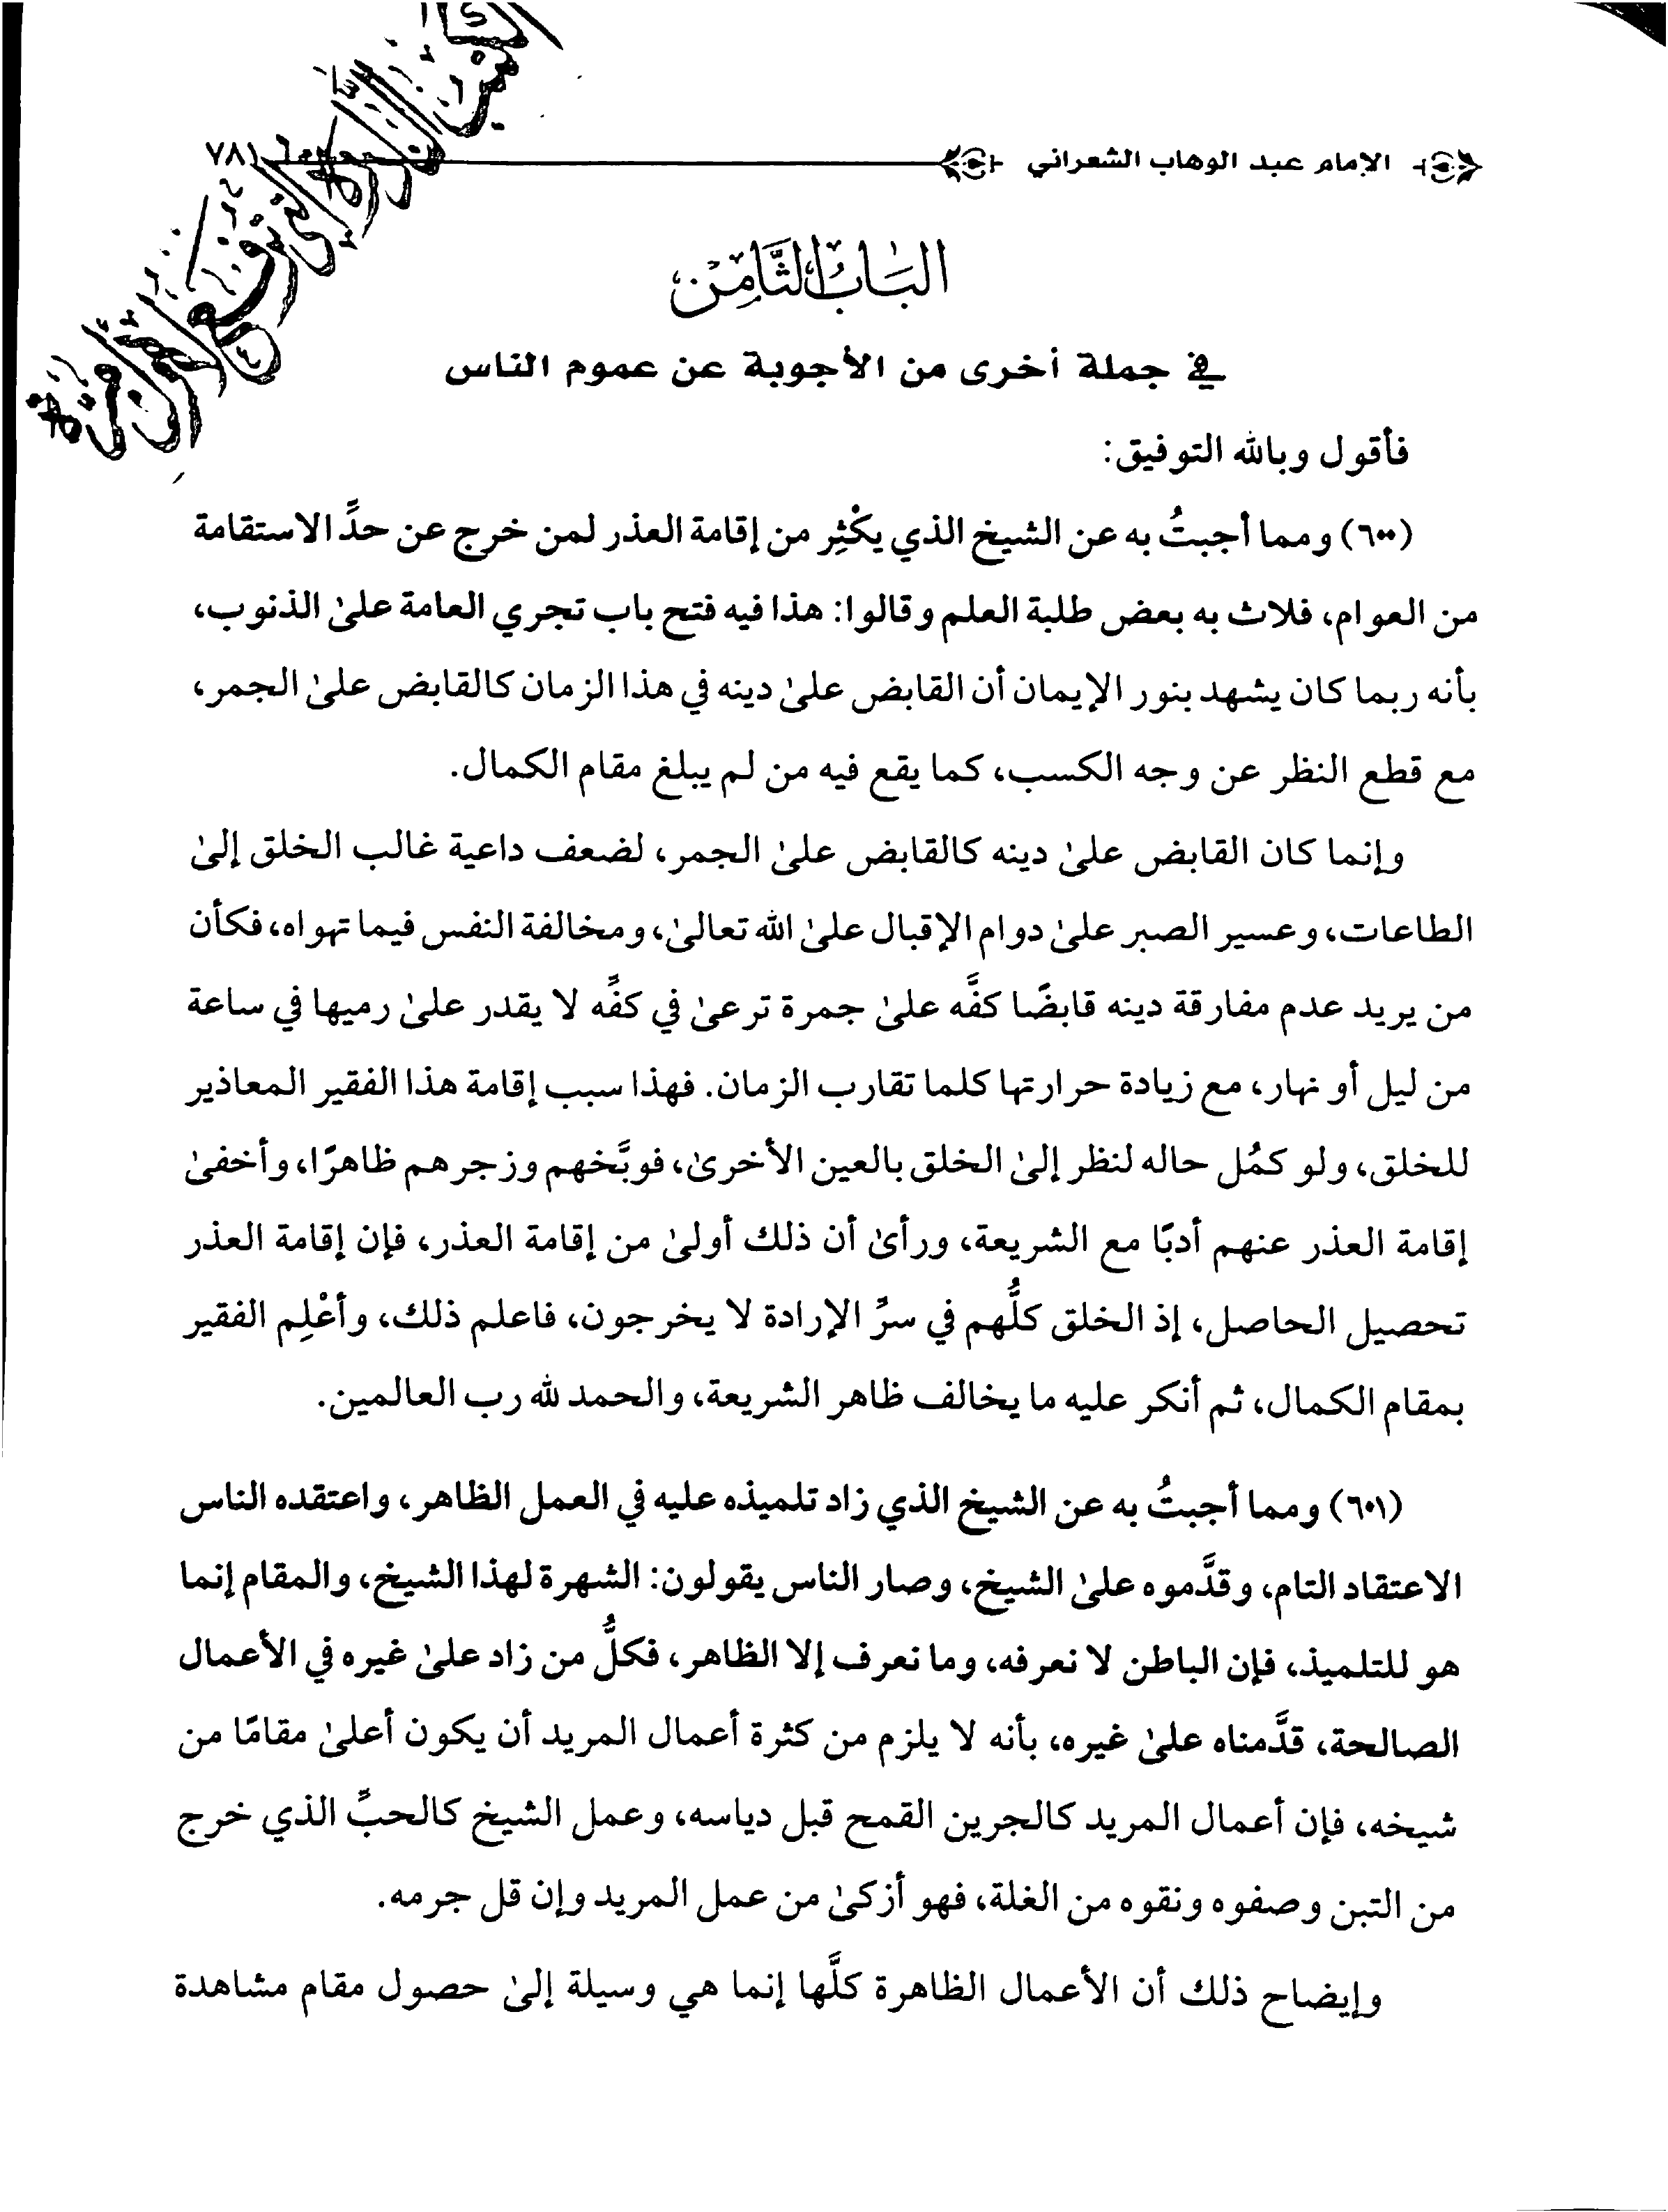 الإمام عبد الوهاب الشعراني ٧٨١
الكتب النادرة التي ترفع لأول مرة
البَابُ الثَّامِن
في جملة أخرى من الأجوبة عن عموم الناس
فأقول وبالله التوفيق:
(٦٠٠) ومما أجبتُ به عن الشيخ الذي يكْثِر من إقامة العذر لمن خرج عن حدِّ الاستقامة
من العوام، فلاث به بعض طلبة العلم وقالوا: هذا فيه فتح باب تجري العامة علىٰ الذنوب،
بأنه ربما كان يشهد بنور الإيمان أن القابض علىٰ دينه في هذا الزمان كالقابض علىٰ الجمر،
مع قطع النظر عن وجه الكسب، كما يقع فيه من لم يبلغ مقام الكمال.
وإنما كان القابض علىٰ دينه كالقابض علىٰ الجمر، لضعف داعية غالب الخلق إلىٰ
الطاعات، وعسير الصبر علىٰ دوام الإقبال علىٰ الله تعالىٰ، ومخالفة النفس فيما تهواه، فكأن
من يريد عدم مفارقة دينه قابضًا كفَّه علىٰ جمرة ترعىٰ في كفِّه لا يقدر علىٰ رميها في ساعة
من ليل أو نهار، مع زيادة حرارتها كلما تقارب الزمان. فهذا سبب إقامة هذا الفقير المعاذير
للخلق، ولو كمُل حاله لنظر إلىٰ الخلق بالعين الأخرىٰ، فوبَّخهم وزجرهم ظاهرًا، وأخفىٰ
إقامة العذر عنهم أدبًا مع الشريعة، ورأىٰ أن ذلك أولىٰ من إقامة العذر، فإن إقامة العذر
تحصيل الحاصل، إذ الخلق كلُّهم في سرِّ الإرادة لا يخرجون، فاعلم ذلك، وأعْلِم الفقير
بمقام الكمال، ثم أنكر عليه ما يخالف ظاهر الشريعة، والحمد لله رب العالمين.
(٦٠١) ومما أجبتُ به عن الشيخ الذي زاد تلميذه عليه في العمل الظاهر، واعتقده الناس
الاعتقاد التام، وقدَّموه علىٰ الشيخ، وصار الناس يقولون: الشهرة لهذا الشيخ، والمقام إنما
هو للتلميذ، فإن الباطن لا نعرفه، وما نعرف إلا الظاهر، فكلُّ من زاد علىٰ غيره في الأعمال
الصالحة، قدَّمناه علىٰ غيره، بأنه لا يلزم من كثرة أعمال المريد أن يكون أعلىٰ مقامًا من
شيخه، فإن أعمال المريد كالجرين القمح قبل دياسه، وعمل الشيخ كالحبِّ الذي خرج
من التبن وصفوه ونقوه من الغلة، فهو أزكىٰ من عمل المريد وإن قل جرمه.
وإيضاح ذلك أن الأعمال الظاهرة كلَّها إنما هي وسيلة إلىٰ حصول مقام مشاهدة